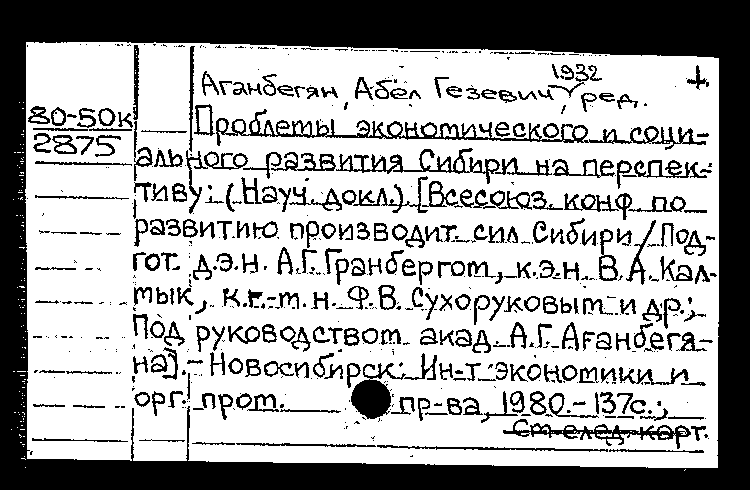 1932
Аганбегян, Абел Гезевич, ред.
80-50к
2875
Проблемы экономического и соци-
ального развития Сибири на перспек-
тиву: (Науч. докл.) [Всесоюз. конф. по
развитию производит. сил Сибири / Под-
гот. д.э.н. А.Г. Гранбергом, к.э.н. В.А. Кал-
мык, к.г.-м.н. Ф.В. Сухоруковым и др.;
Под руководством акад. А.Г. Аганбегя-
на]. - Новосибирск: Ин-т экономики и
орг. пром. пр-ва, 1980. - 137с.;
См. след. карт.